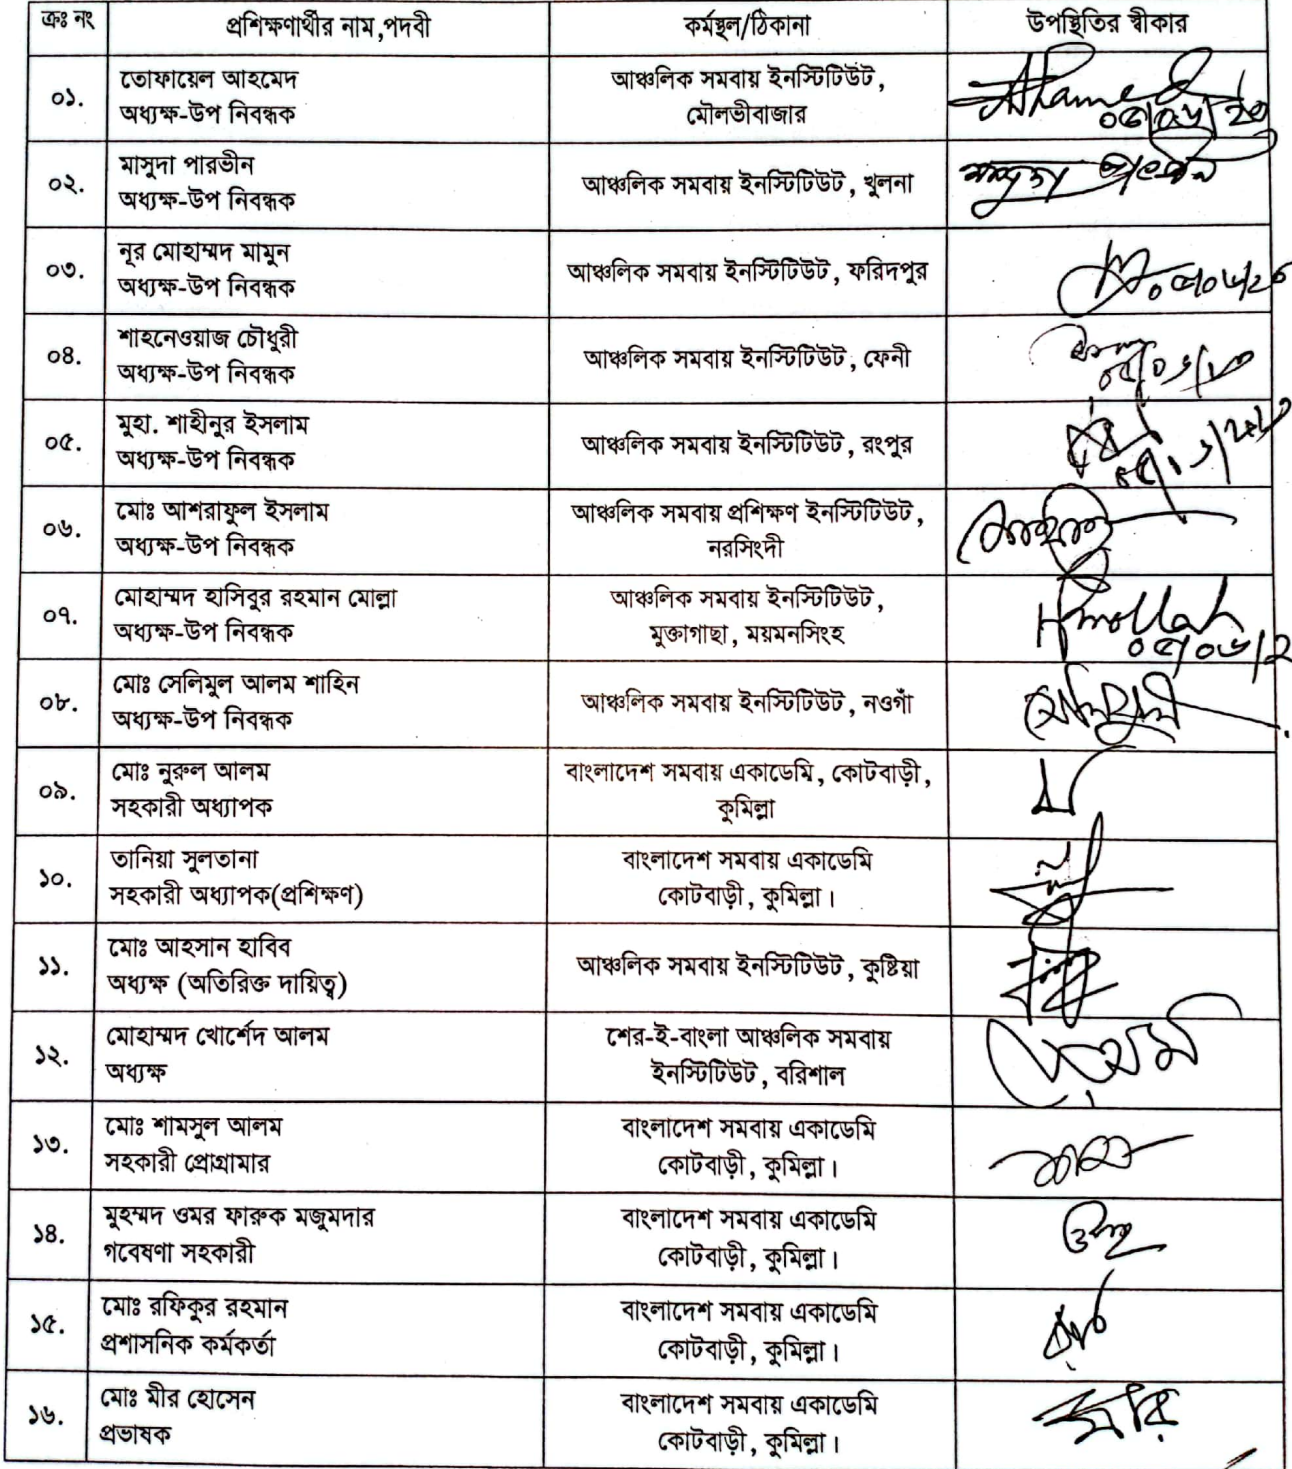 ক্রঃ নং প্রশিক্ষণার্থীর নাম,পদবী কর্মস্থল/ঠিকানা উপস্থিতির স্বীকার
০১. তোফায়েল আহমেদ
অধ্যক্ষ-উপ নিবন্ধক
আঞ্চলিক সমবায় ইনস্টিটিউট,
মৌলভীবাজার
Ahamed
০৫/০৬/২৩
০২. মাসুদা পারভীন
অধ্যক্ষ-উপ নিবন্ধক
আঞ্চলিক সমবায় ইনস্টিটিউট, খুলনা
০৩. নূর মোহাম্মদ মামুন
অধ্যক্ষ-উপ নিবন্ধক
আঞ্চলিক সমবায় ইনস্টিটিউট, ফরিদপুর
০৪. শাহনেওয়াজ চৌধুরী
অধ্যক্ষ-উপ নিবন্ধক
আঞ্চলিক সমবায় ইনস্টিটিউট, ফেনী
০৫. মুহা. শাহীনুর ইসলাম
অধ্যক্ষ-উপ নিবন্ধক
আঞ্চলিক সমবায় ইনস্টিটিউট, রংপুর
০৬. মোঃ আশরাফুল ইসলাম
অধ্যক্ষ-উপ নিবন্ধক
আঞ্চলিক সমবায় প্রশিক্ষণ ইনস্টিটিউট,
নরসিংদী
০৭. মোহাম্মদ হাসিবুর রহমান মোল্লা
অধ্যক্ষ-উপ নিবন্ধক
আঞ্চলিক সমবায় ইনস্টিটিউট,
মুক্তাগাছা, ময়মনসিংহ
Hmollah
০৫/০৬/২
০৮. মোঃ সেলিমুল আলম শাহিন
অধ্যক্ষ-উপ নিবন্ধক
আঞ্চলিক সমবায় ইনস্টিটিউট, নওগাঁ
০৯. মোঃ নুরুল আলম
সহকারী অধ্যাপক
বাংলাদেশ সমবায় একাডেমি, কোটবাড়ী,
কুমিল্লা
১০. তানিয়া সুলতানা
সহকারী অধ্যাপক(প্রশিক্ষণ)
বাংলাদেশ সমবায় একাডেমি
কোটবাড়ী, কুমিল্লা।
১১. মোঃ আহসান হাবিব
অধ্যক্ষ (অতিরিক্ত দায়িত্ব)
আঞ্চলিক সমবায় ইনস্টিটিউট, কুষ্টিয়া
১২. মোহাম্মদ খোর্শেদ আলম
অধ্যক্ষ
শের-ই-বাংলা আঞ্চলিক সমবায়
ইনস্টিটিউট, বরিশাল
১৩. মোঃ শামসুল আলম
সহকারী প্রোগ্রামার
বাংলাদেশ সমবায় একাডেমি
কোটবাড়ী, কুমিল্লা।
১৪. মুহম্মদ ওমর ফারুক মজুমদার
গবেষণা সহকারী
বাংলাদেশ সমবায় একাডেমি
কোটবাড়ী, কুমিল্লা।
১৫. মোঃ রফিকুর রহমান
প্রশাসনিক কর্মকর্তা
বাংলাদেশ সমবায় একাডেমি
কোটবাড়ী, কুমিল্লা।
১৬. মোঃ মীর হোসেন
প্রভাষক
বাংলাদেশ সমবায় একাডেমি
কোটবাড়ী, কুমিল্লা।